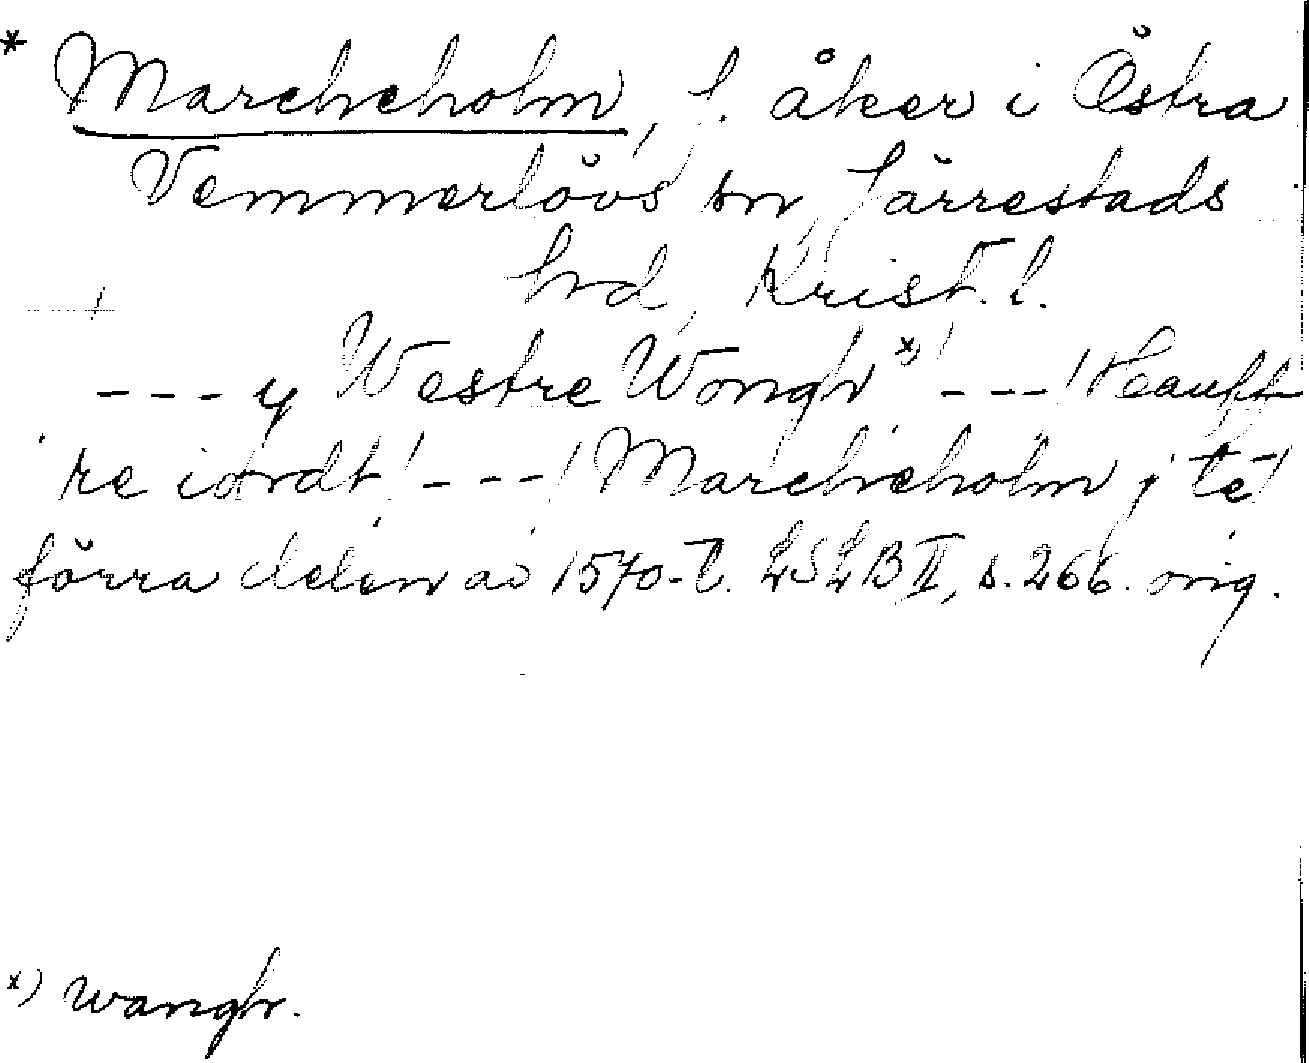 * Marckeholm, f. åker i Östra
Vemmerlövs sn, Järrestads
hrd, Krist. l.
--- y Westre Wongh x) ! ---! Hauff
re iordt! ---! Marckeholm j te!
förra delen av 1570-t. LSLB II, s. 266. orig.
x) wangh.